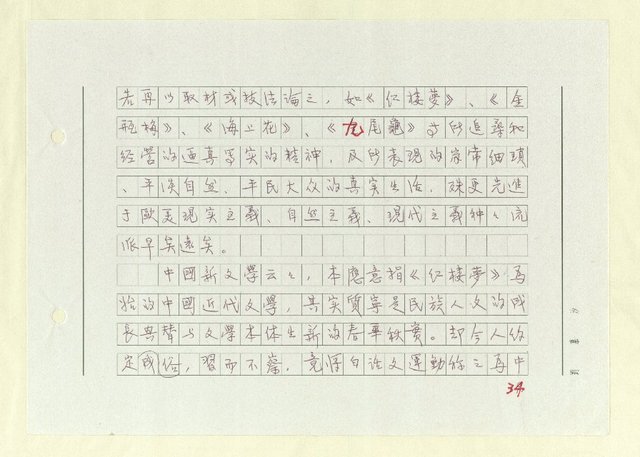 若再以取材或技法論之，如《紅楼夢》、《金
瓶梅》、《海上花》、《九尾龜》等所追尋和
經營的逼真写实的精神，及所表現的家常細瑣
、平淡自然、平民大众的真実生活，殊更先進
于歐美現実主義、自然主義、現代主義种々流
派早矣遠矣。
中國新文學云々，本應意指《紅楼夢》為
始的中國近代文學，其实質寧是民族人文的成
長與替与文學本体生新的春華秋實。却今人約
定成俗，習而不察，竟惯白话文運動称之為中
34